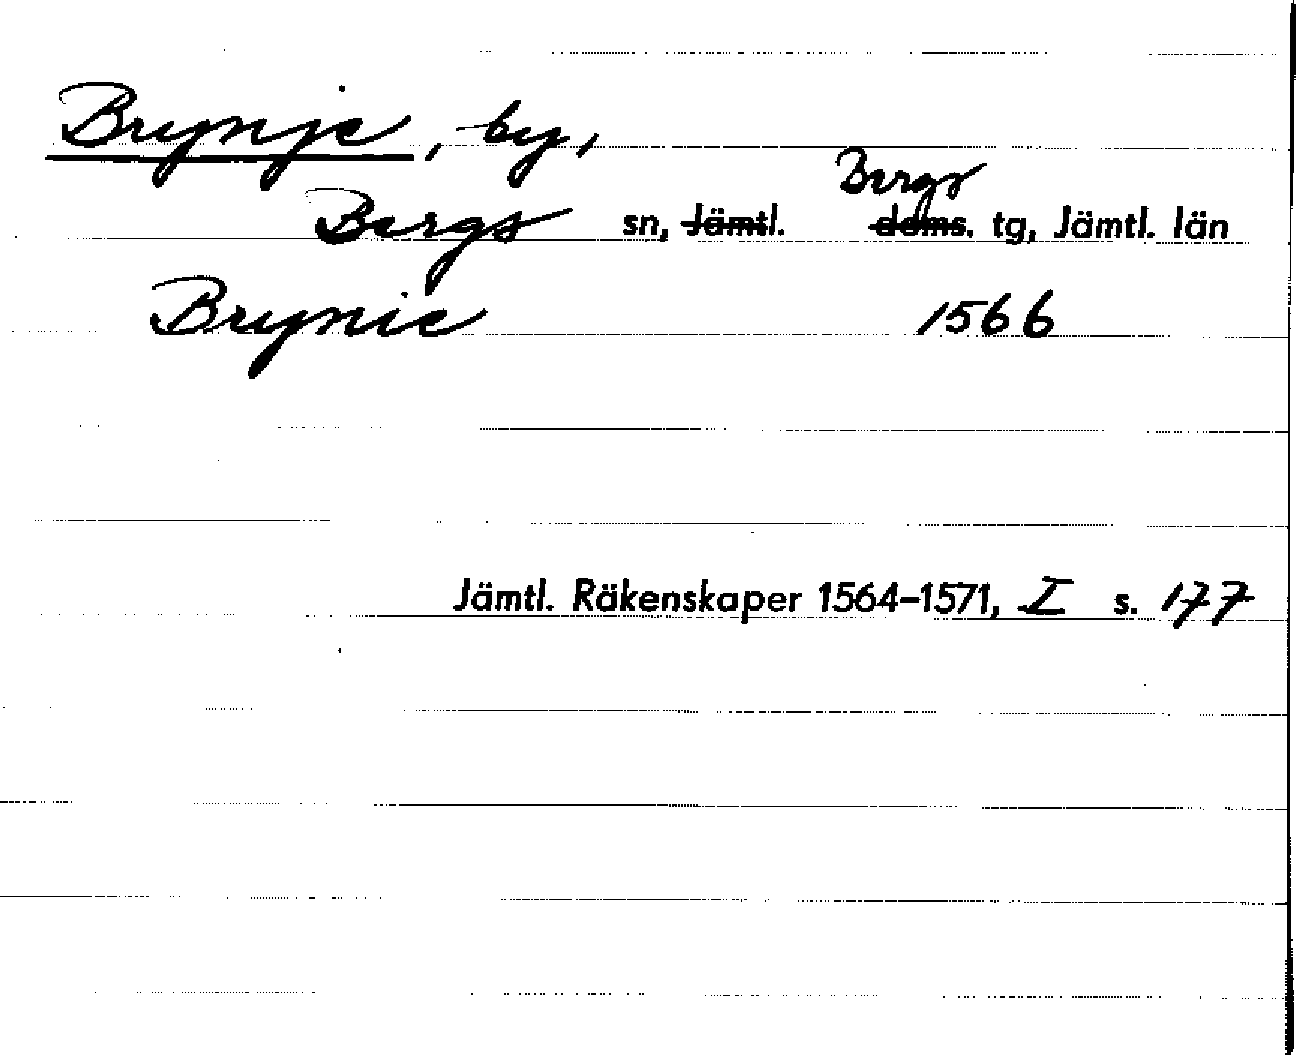 Brynje, by,
Bergs sn, Jämtl. Bergs doms. tg, Jämtl. län
Brynie 1566
Jämtl. Räkenskaper 1564-1571, I s. 177